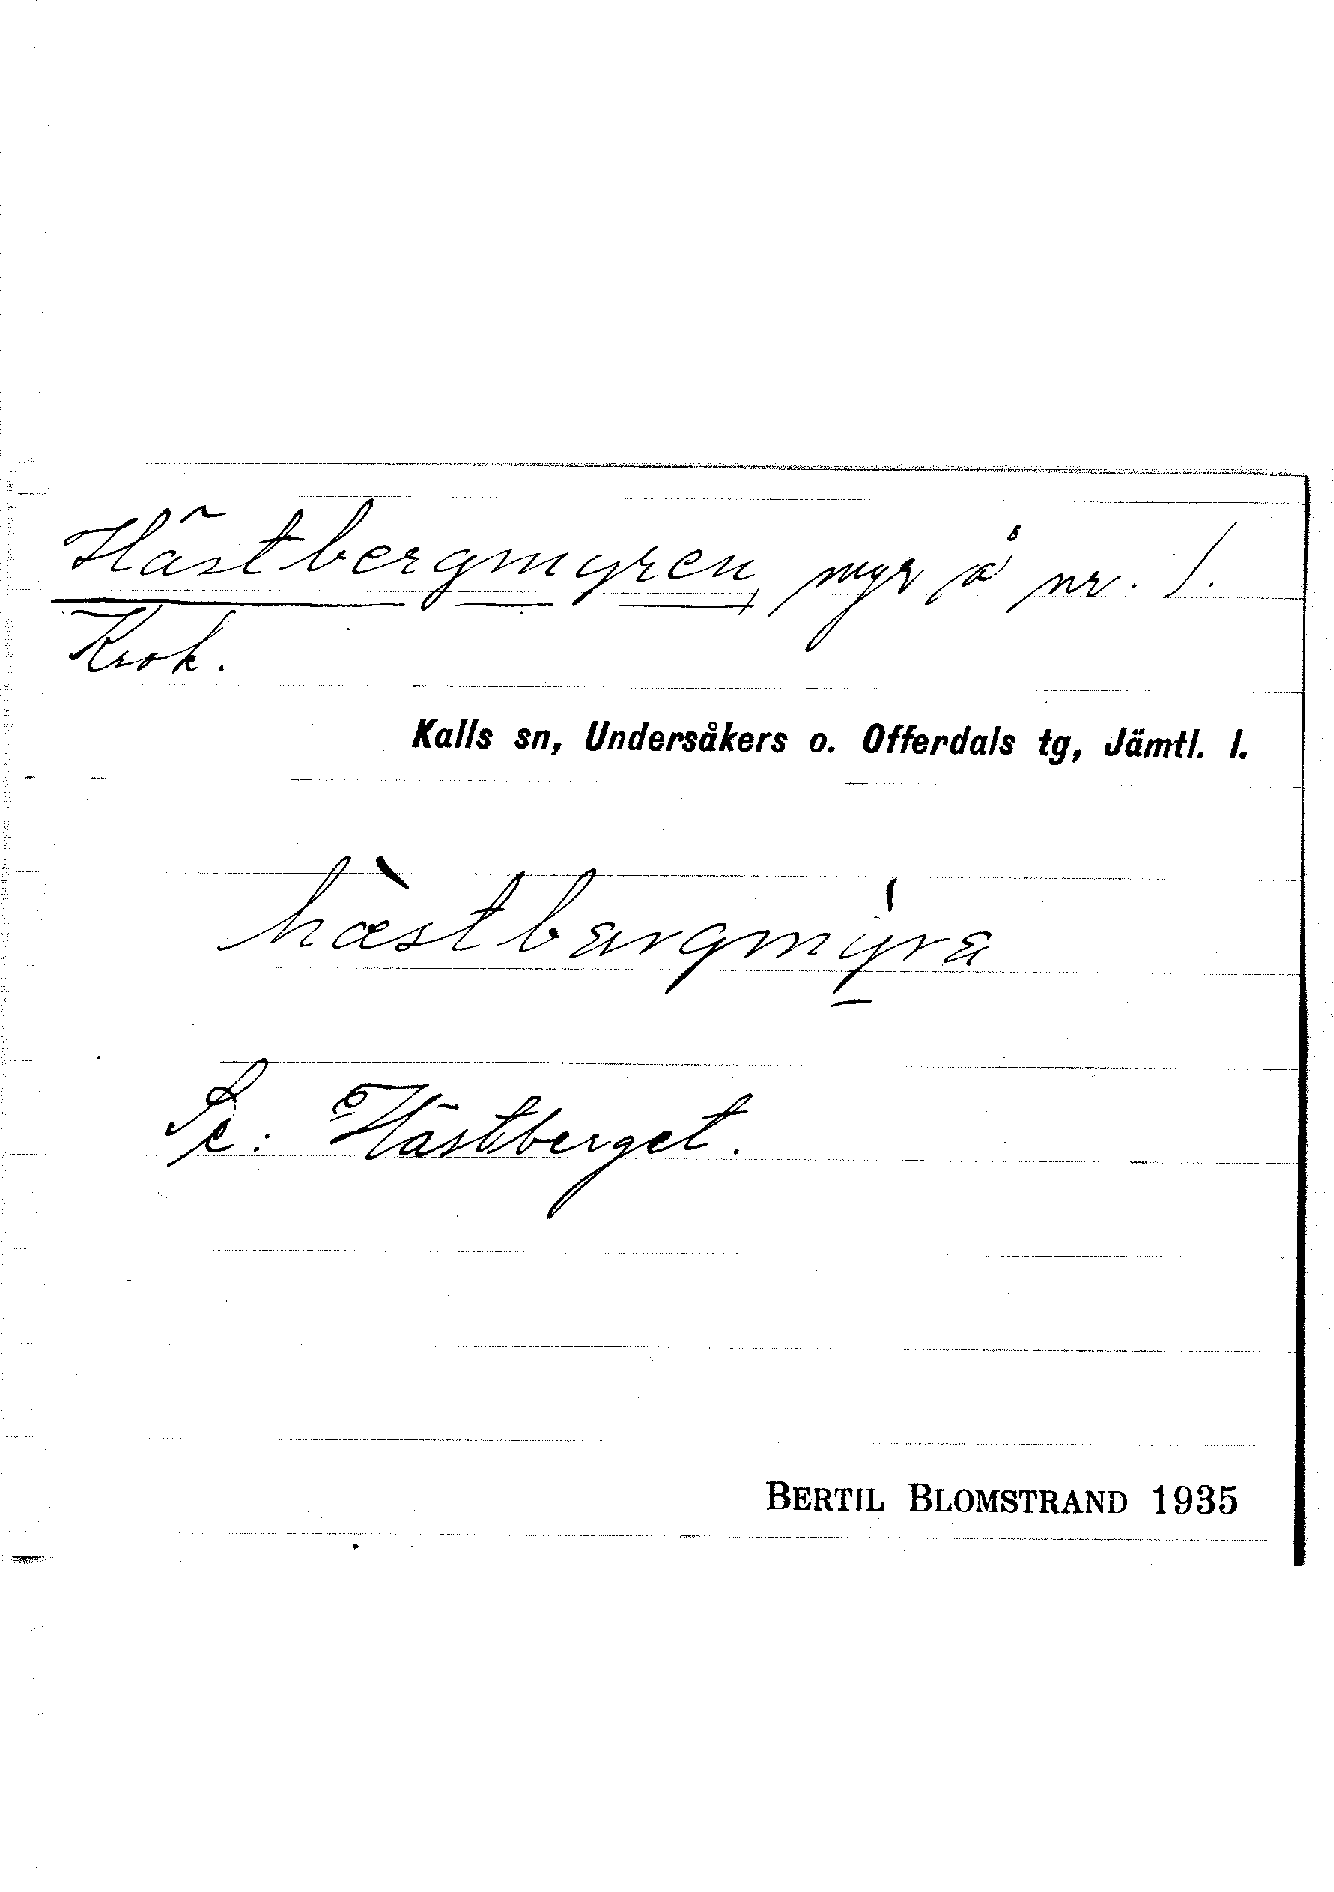 Hästbergmyren, myr å nr. 1.
Krok.
Kalls sn, Undersåkers o. Offerdals tg, Jämtl. l.
hæ̀stbargmýra
Se: Hästberget.
BERTIL BLOMSTRAND 1935